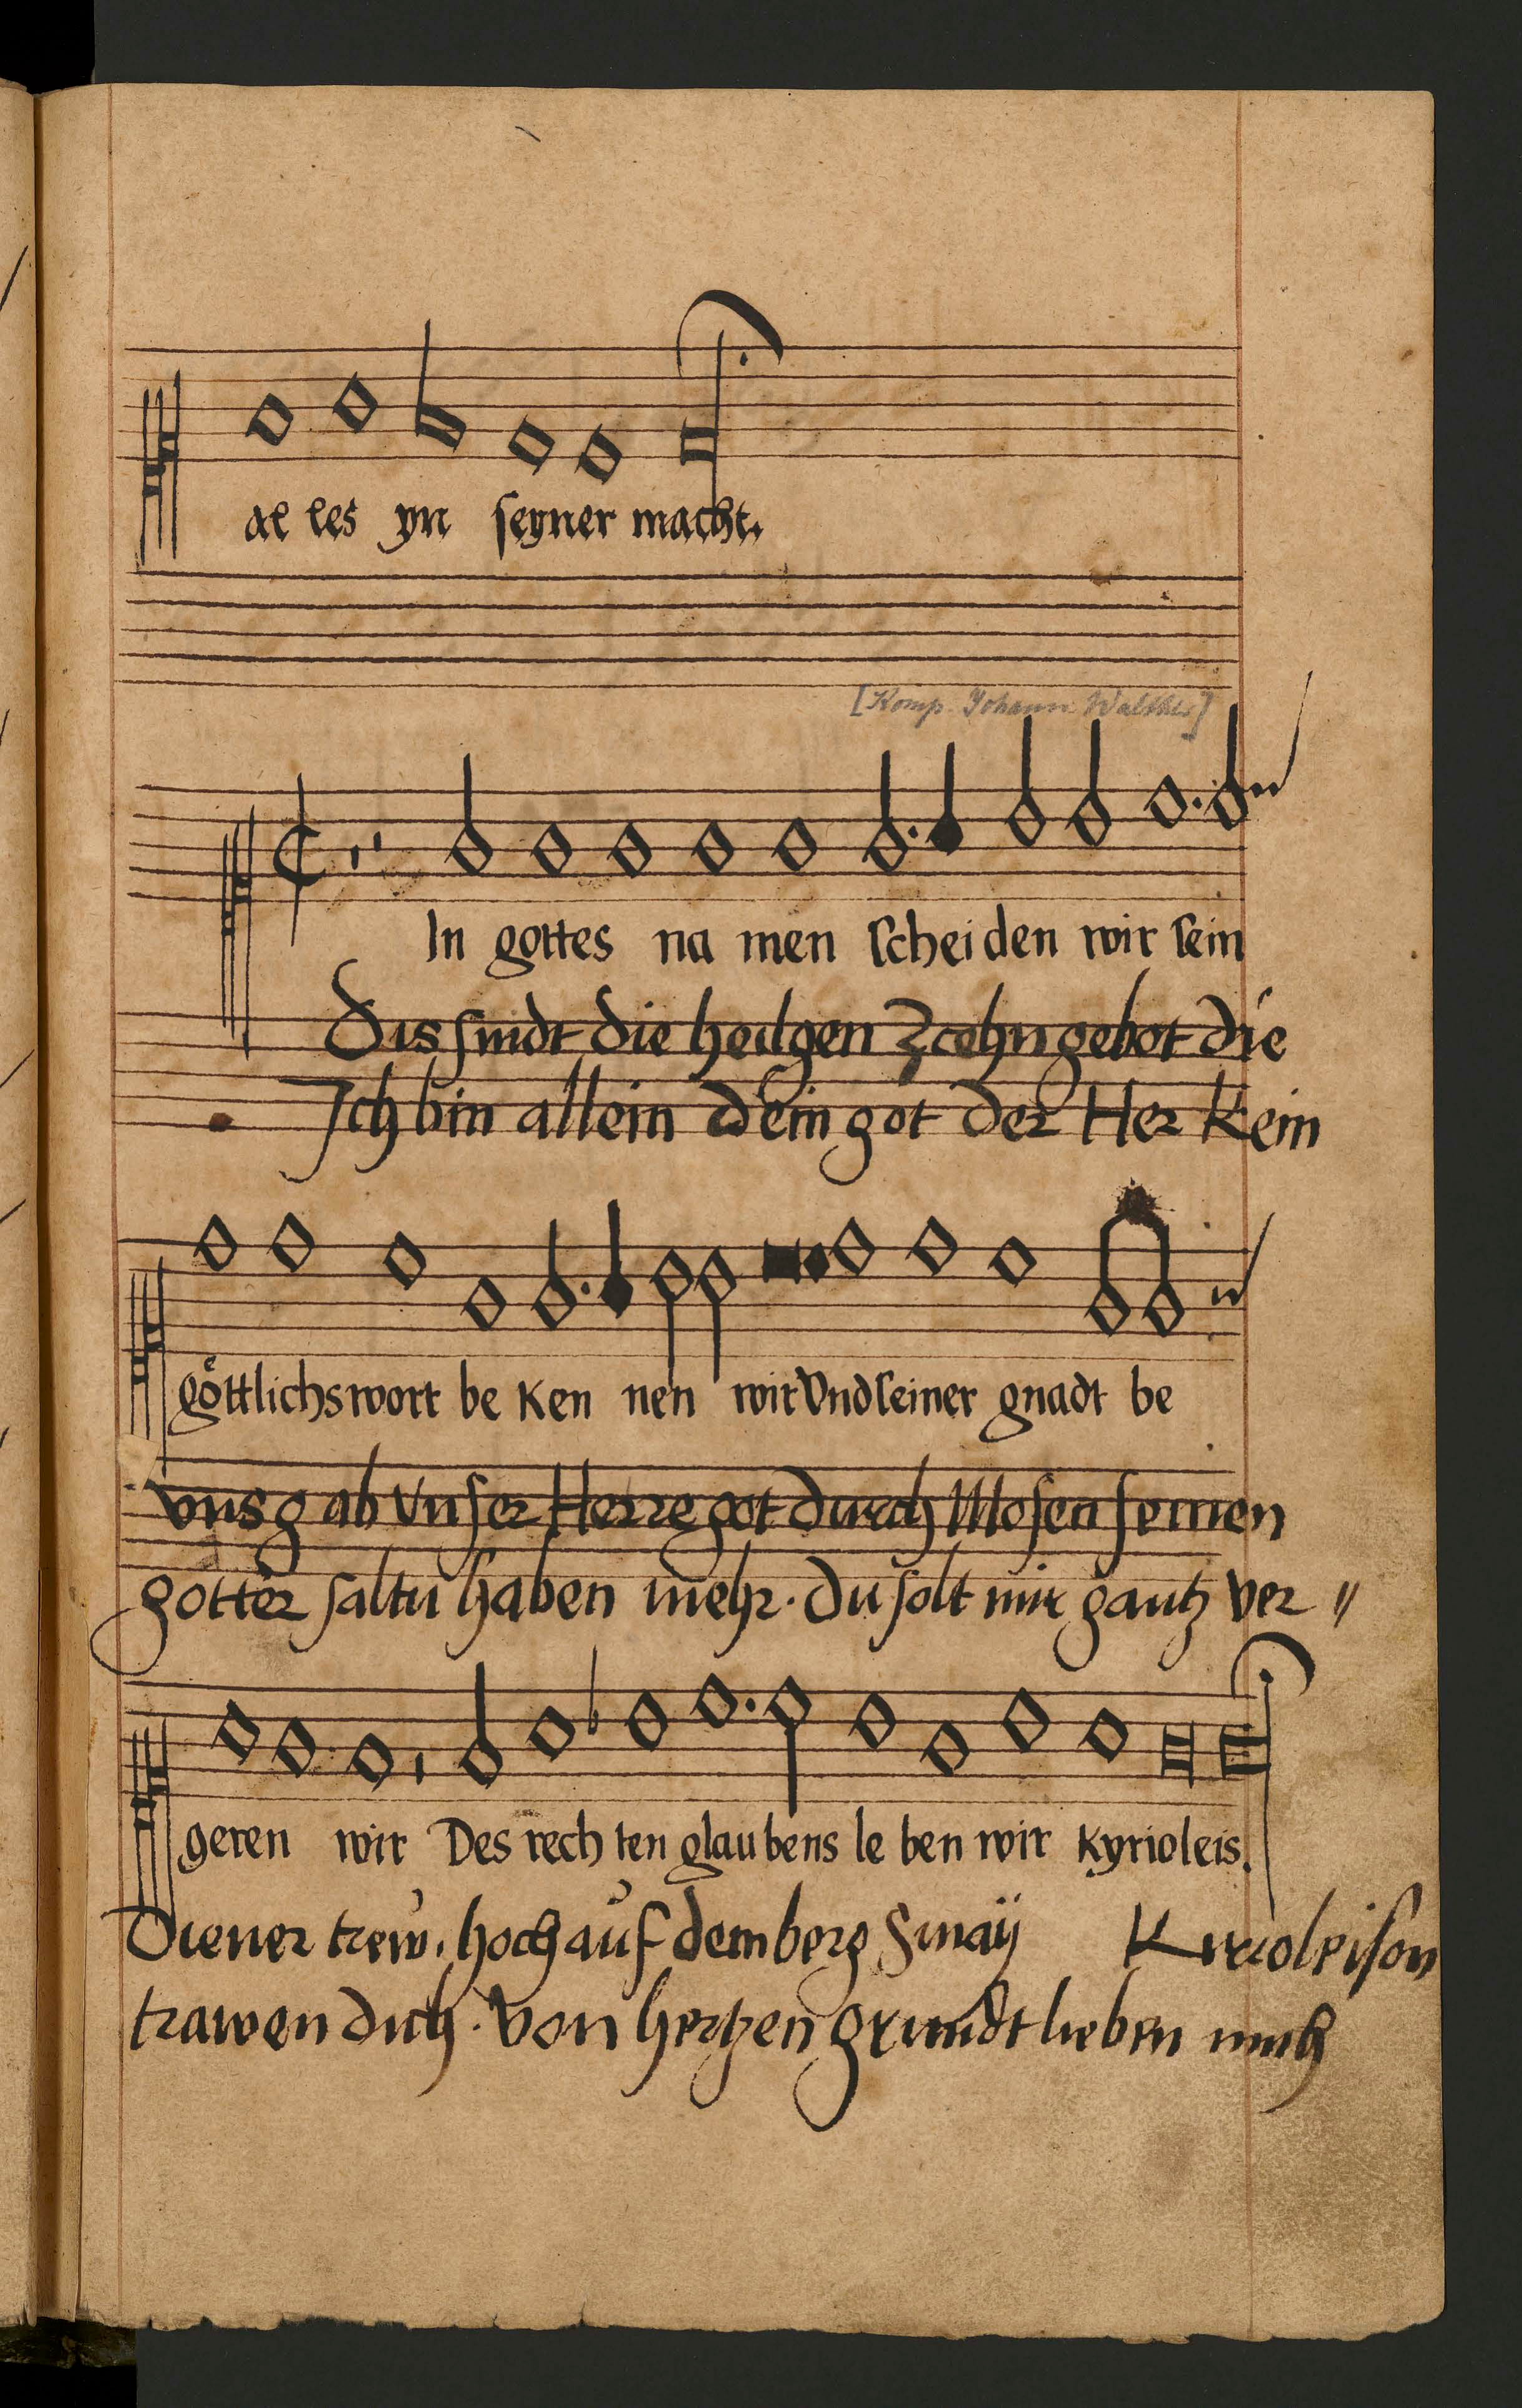 al les yn seyner macht.
[Komp. Johann Walther]
In gottes na men scheiden wir sein
Dis sindt die heilgen Zcehn gebot die
Ich bin allein dein got der Her Kein
göttlichs wort be Ken nen wir Vnd seiner gnadt be
vns gab vnser Herre got durch Mosen seinen
gotter saltu haben mehr. du solt mir gantz ver //
geren wir Des rech ten glau bens le ben wir Kyrioleis.
Diener trew. hoch auf dem berg Sinaÿ Kirioleison
trawen dich. von hertzen grundt lieben mich